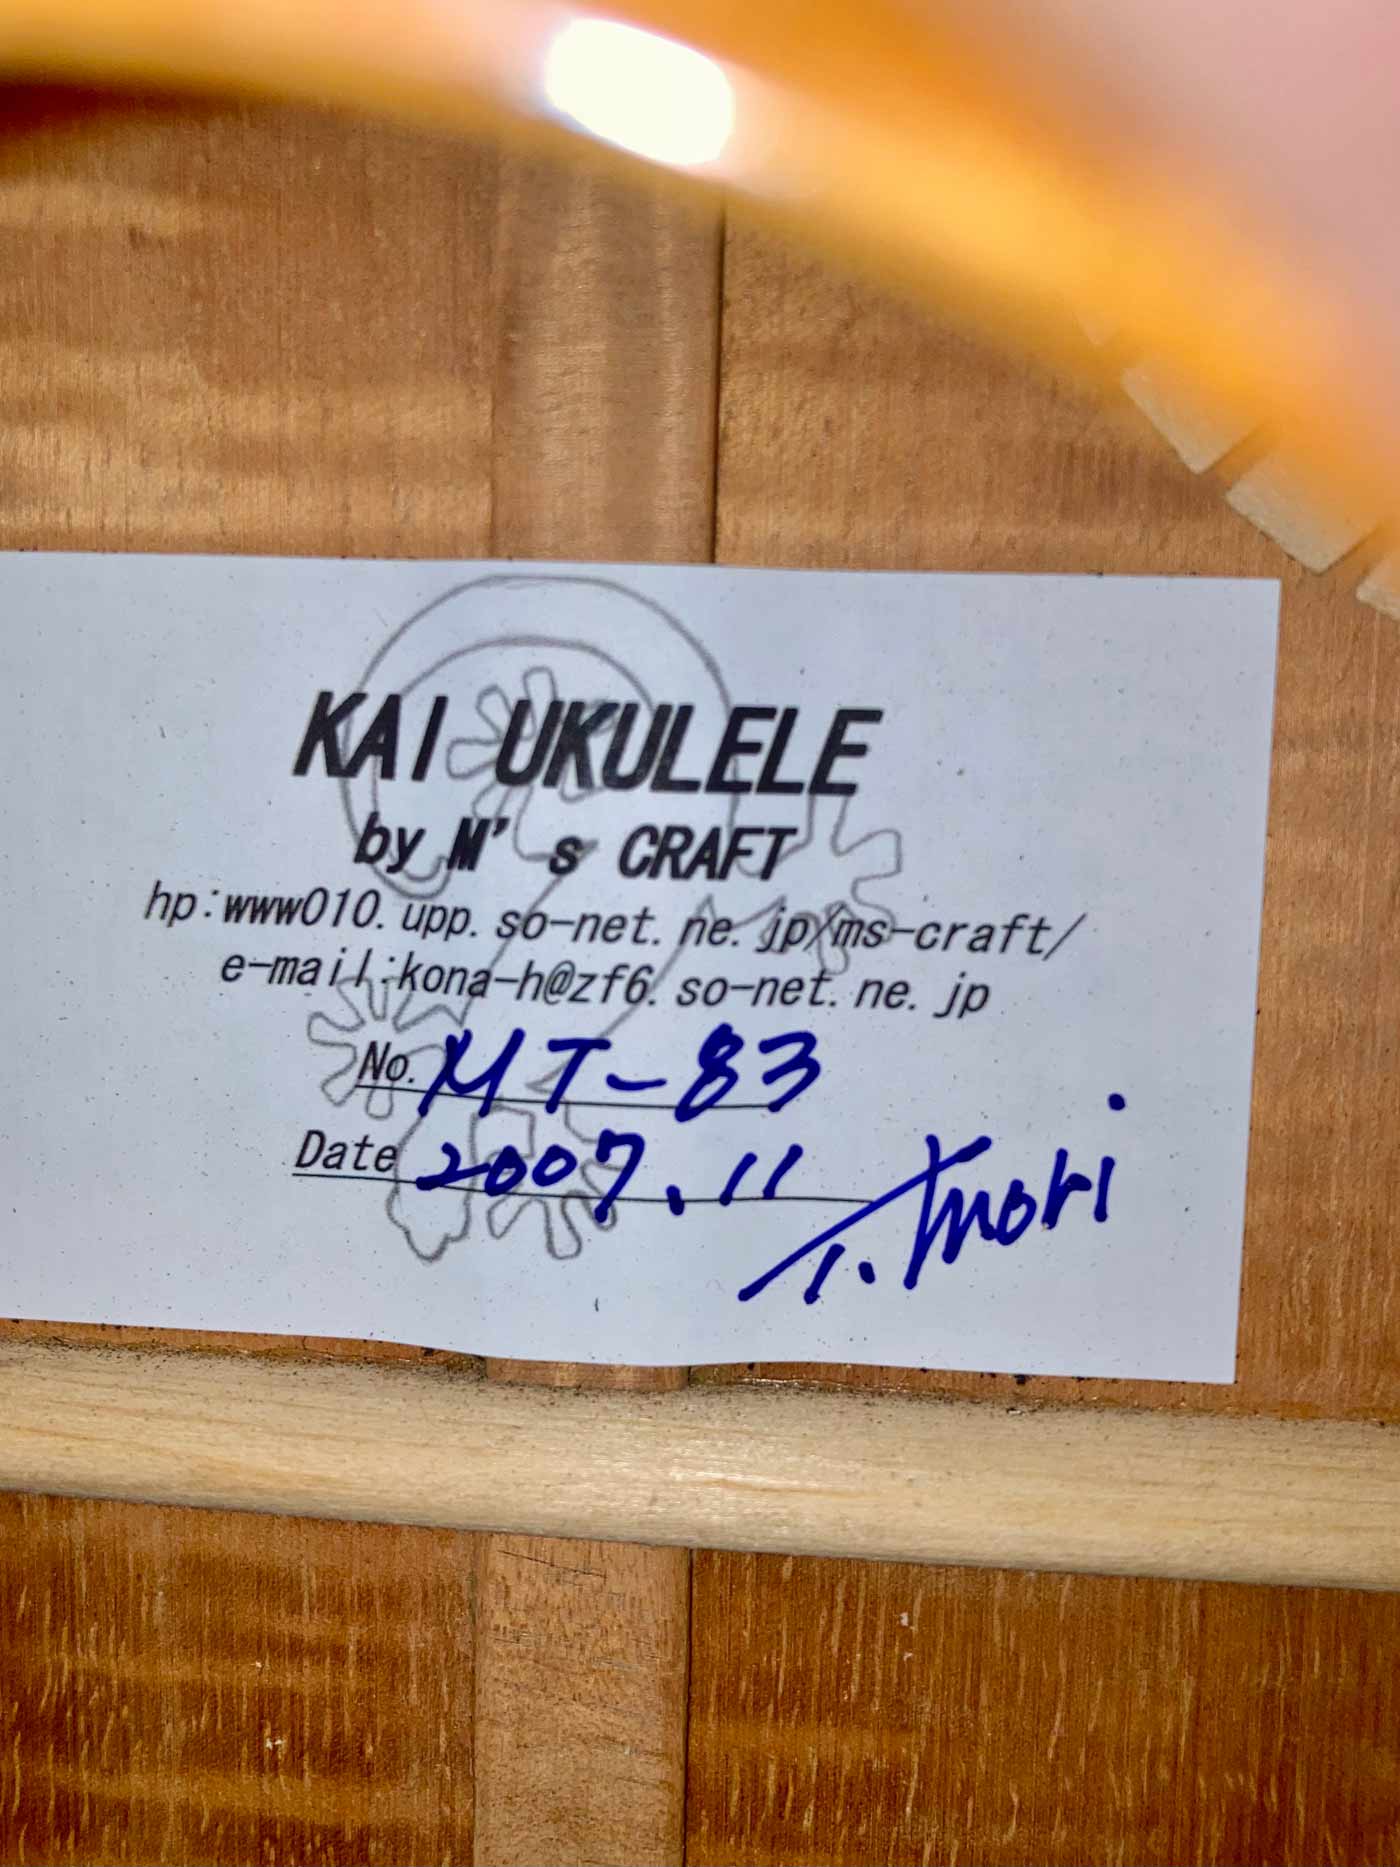 KAI UKULELE
by M's CRAFT
hp:www010.upp.so-net.ne.jp/ms-craft/
e-mail:kona-h@zf6.so-net.ne.jp
No. MT-83
Date 2007.11
T. Mori